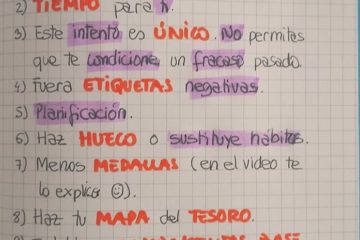 2) TIEMPO para ti.
3) Este intento es ÚNICO. No permitas
que te condicione un fracaso pasado.
4) Fuera ETIQUETAS negativas.
5) Planificación.
6) Haz HUECO o sustituye hábitos.
7) Menos MEDALLAS (en el video te
lo explico ☺).
8) Haz tu MAPA del TESORO.